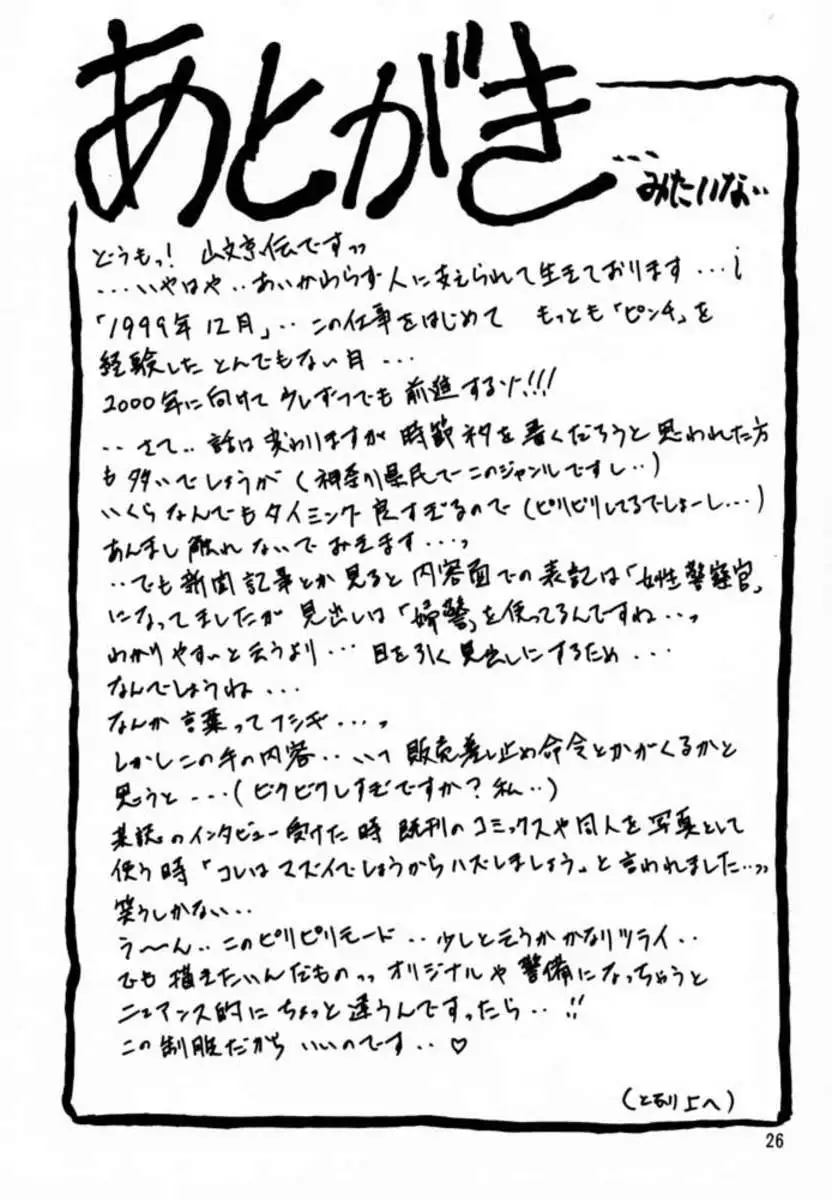 あとがき
…みたいな‥
どうもっ! 山文京伝ですっっ
…いやはや‥あいかわらず人に支えられて生きております…
「1999年12月」‥この仕事をはじめて もっとも「ピンチ」を
経験した とんでもない月…
2000年に向けて少しずつでも前進するゾ!!!
‥さて‥話は変わりますが時節ネタを書くだろうと思われた方
も多いでしょうが(神奈川県民でこのジャンルですし‥)
いくらなんでもタイミング良すぎるので(ピリピリしてるでしょーし…)
あんまし触れないでおきます…っ
‥でも新聞記事とか見ると内容面での表記は「女性警察官」
になってましたが見出しは「婦警」を使ってるんですね…っ
わかりやすいと云うより…目を引く見出しにするため…
なんでしょうね…
なんか言葉ってフシギ…っ
しかしこの手の内容‥いつ販売差し止め命令とかがくるかと
思うと…(ビクビクしすぎですか?私‥)
某誌のインタビュー受けた時 既刊のコミックスや同人を写真として
使う時「コレはマズイでしょうからハズしましょう」と言われました…っっ
笑うしかない‥
う〜ん‥このピリピリモード‥少しと云うかかなりツライ‥
でも描きたいんだものっっオリジナルや警備になっちゃうと
ニュアンス的にちょっと違うんですったら‥!!
この制服だから いいのです‥♡
(となり上へ)
26